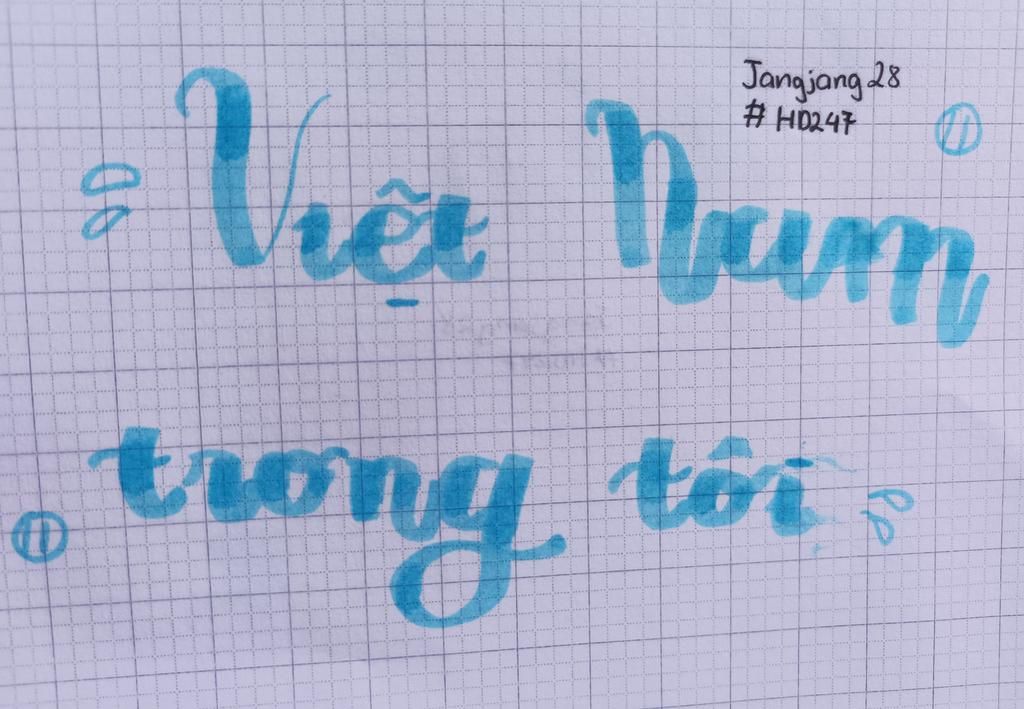 Jangjang 28
# HD247
Việt Nam
trong tôi